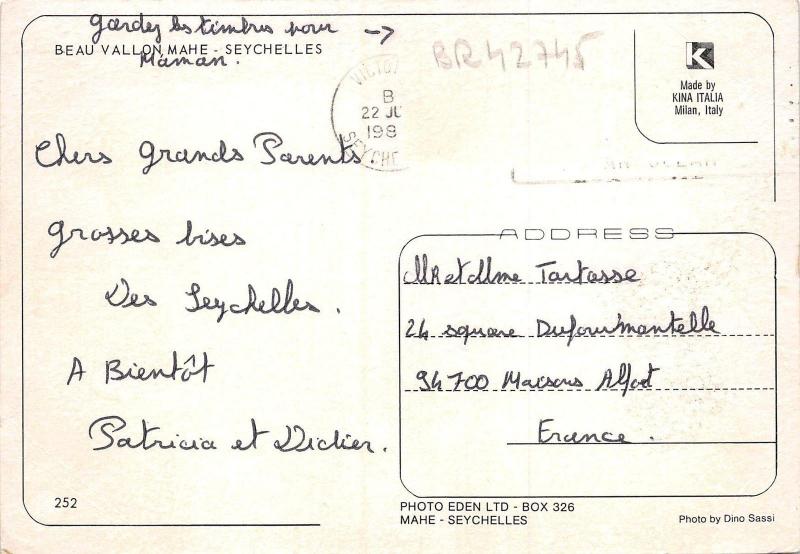 gardez les timbres pour →
BEAU VALLON MAHE - SEYCHELLES
Maman.
BR42745
VICTO
B
22 JU
199
SEYCHE
K
Made by
KINA ITALIA
Milan, Italy
Chers Grands Parents
grosses bises
Des Seychelles.
A Bientôt
Patricia et Didier.
ADDRESS
MR et Mme Tartasse
24 square Dufourmantelle
94700 Maisons Alfort
France.
252
PHOTO EDEN LTD - BOX 326
MAHE - SEYCHELLES
Photo by Dino Sassi